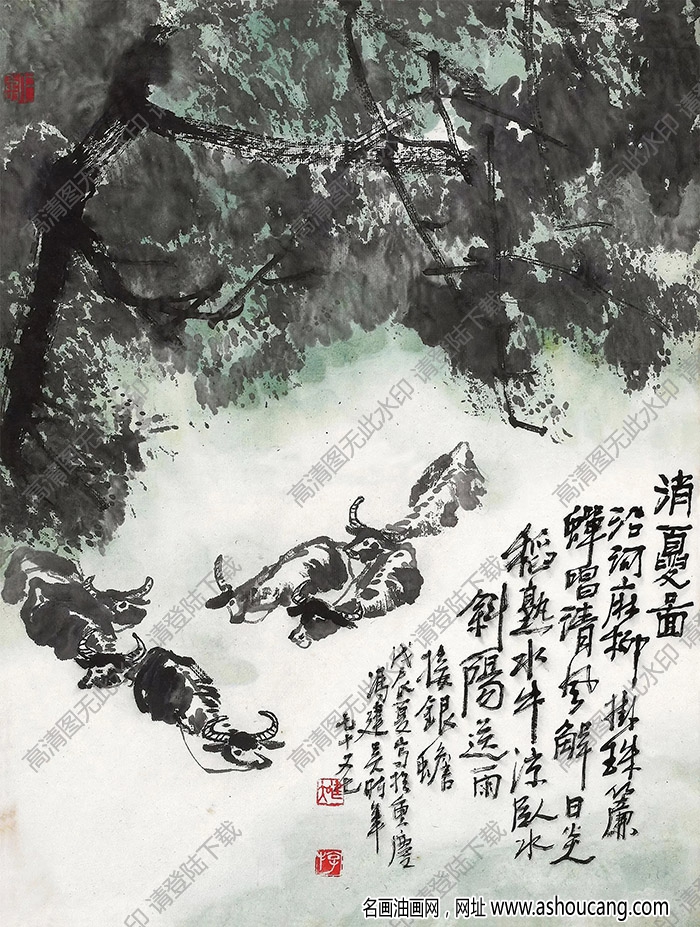 消夏图
沿河麻柳掛珠簾
蟬唱清風解日炎
稻熟水牛涼卧水
斜陽送雨
接銀蟾
戊辰夏寫於重慶
馮建吴時年
七十又七
高清图无此水印 请登陆下载
名画油画网，网址 www.ashoucang.com